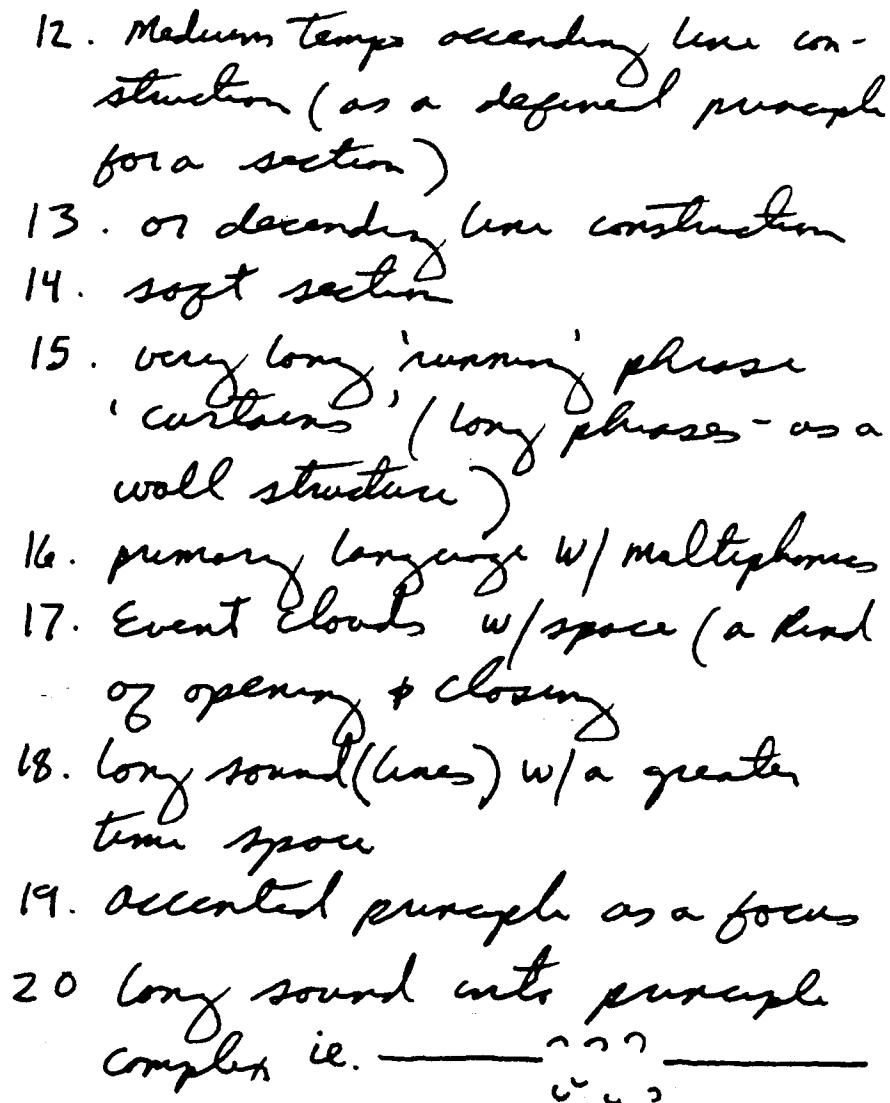 12. Medium tempo accending line con-
struction (as a defined principle
for a section)
13. or decending line construction
14. soft section
15. very long 'running' phrase
'curtains' (long phrases - as a
wall structure)
16. primary language w/ multiphonics
17. Event clouds w/space (a kind
of opening & closing
18. long sound (lines) w/a greater
time space
19. accented principle as a focus
20 long sound into principle
complex ie.